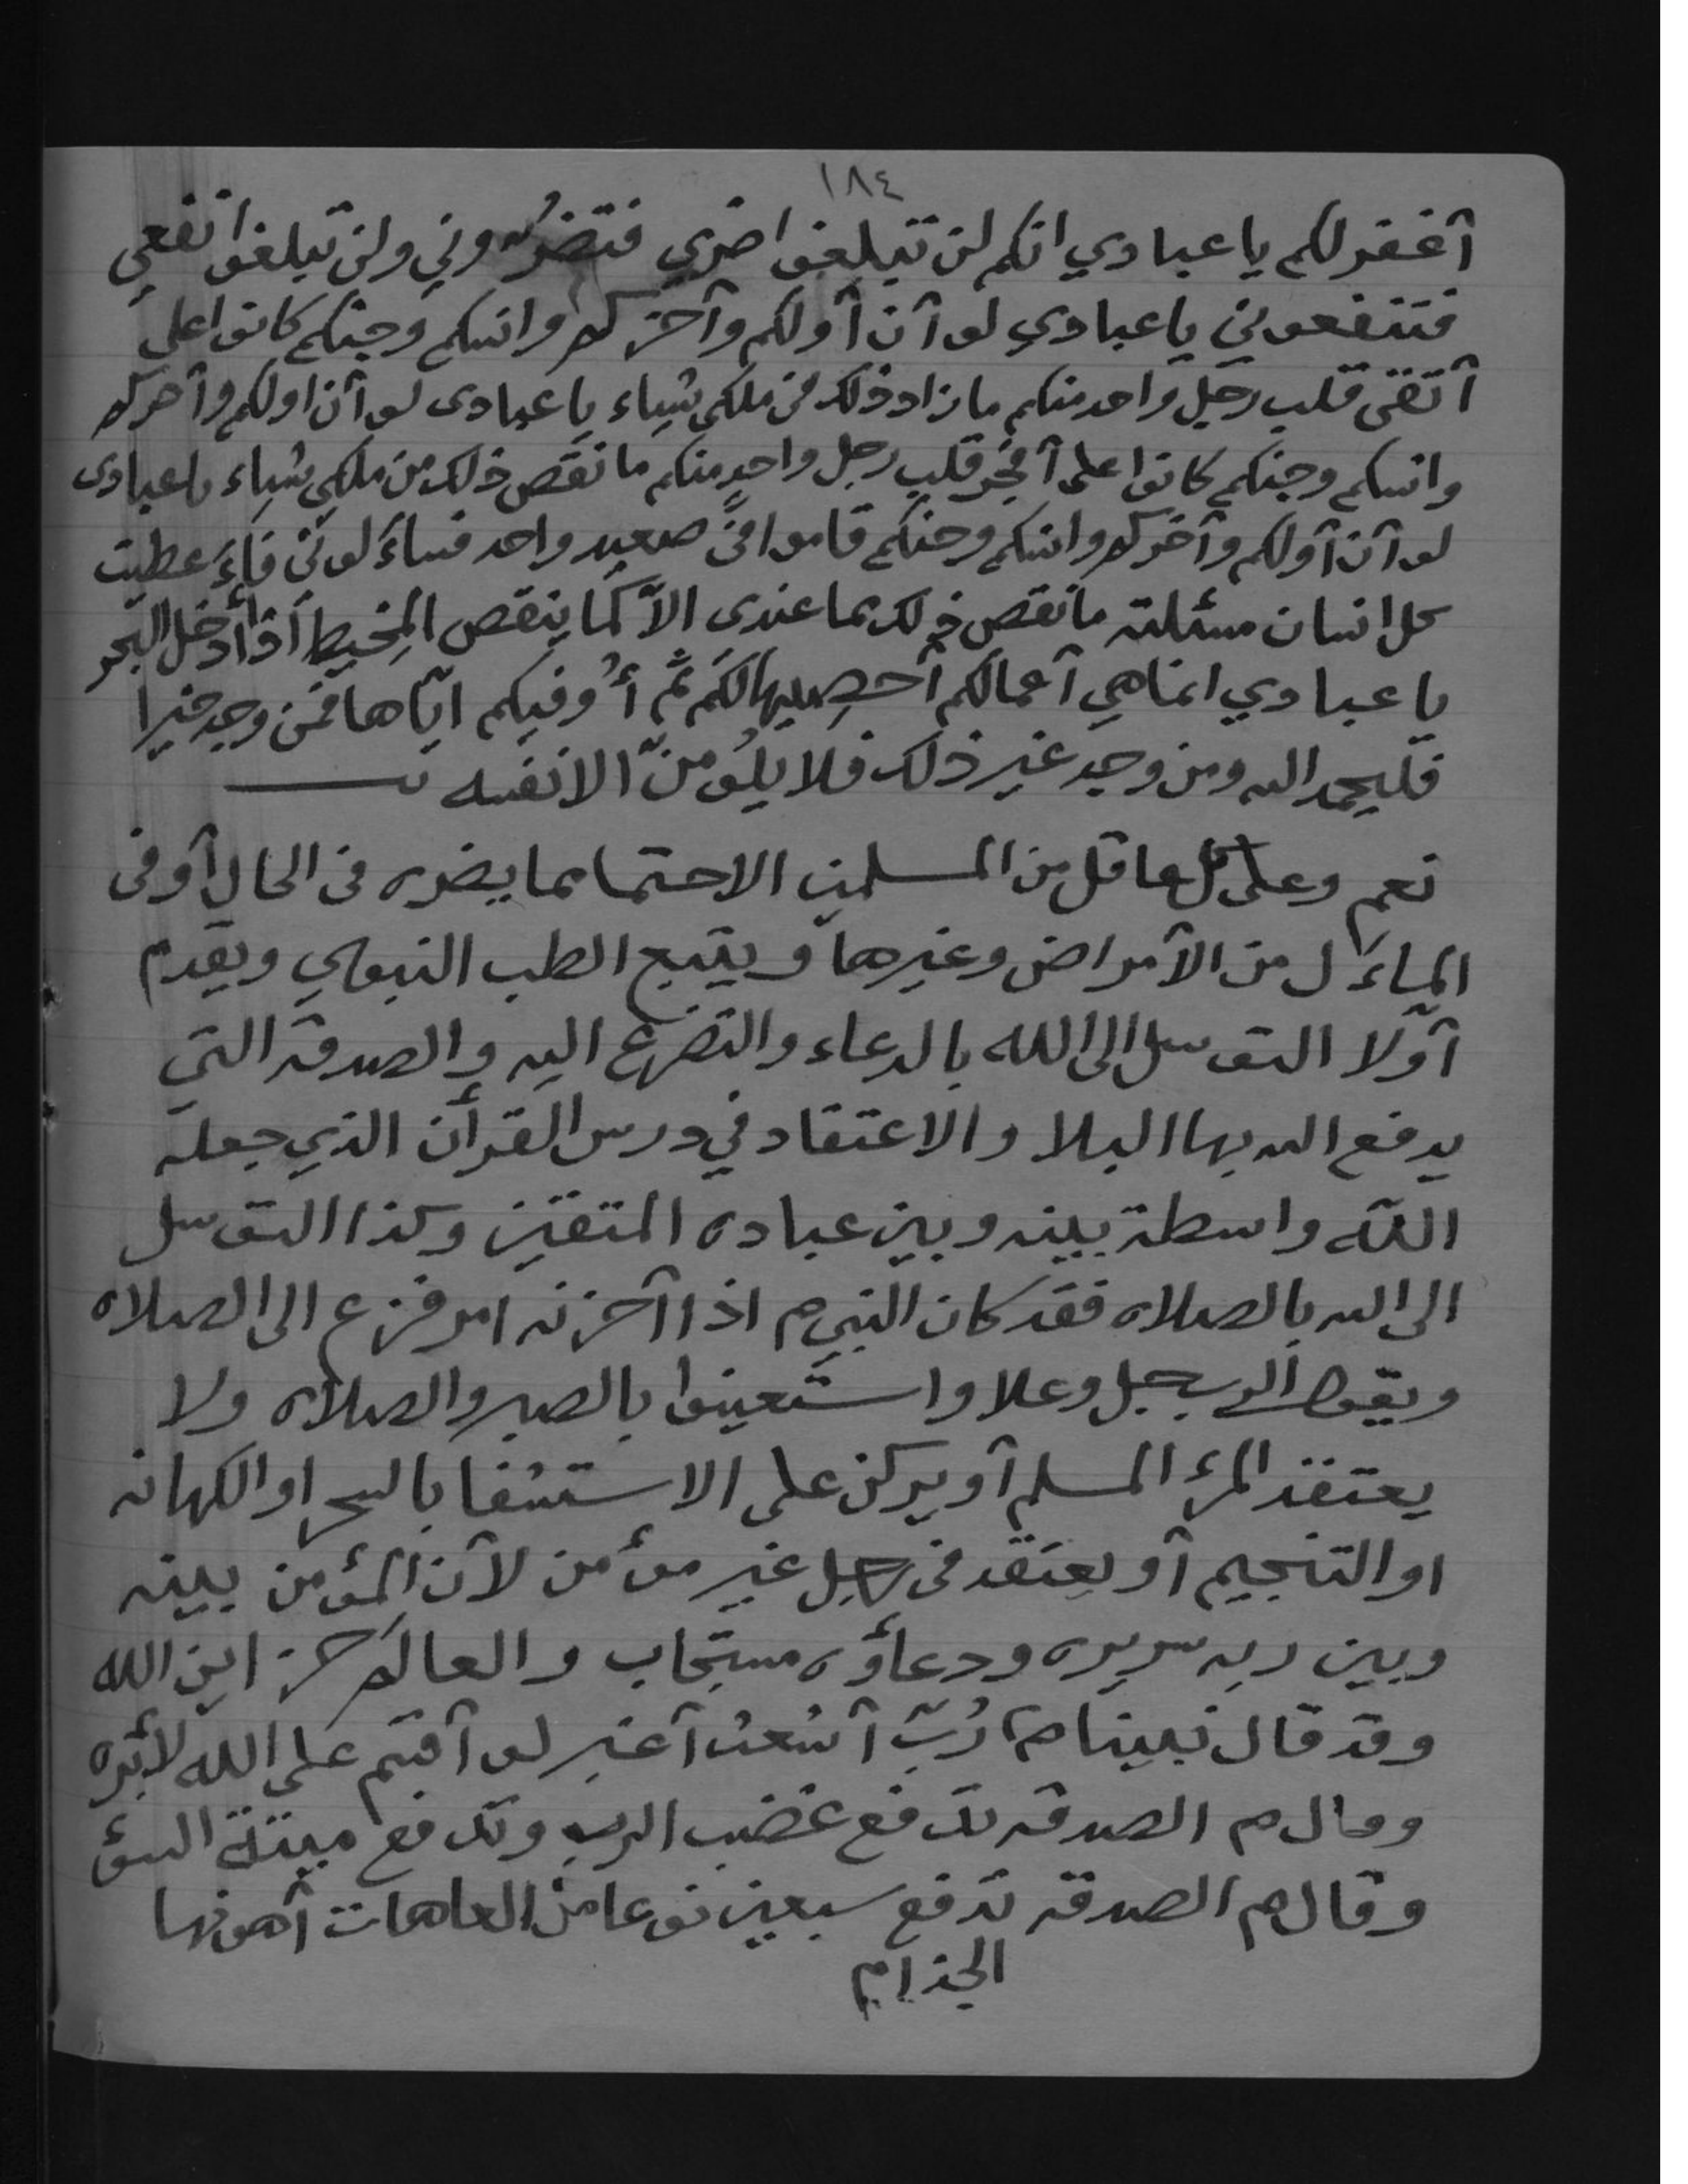 ١٨٤
أغفر لكم يا عبادي انكم لن تبلغوا ضري فتضروني ولن تبلغوا نفعي
فتنفعوني يا عبادي لو آن آولكم وآخركم وانسكم وجنكم كانوا على
آتقى قلب رجل واحد منكم ما زاد ذلك في ملكي شياء يا عبادى لو آن اولكم وآخركم
وانسكم وجنكم كانوا على آفجر قلب رجل واحد منكم ما نقص ذلك من ملكي شياء يا عبادى
لو آن آولكم وآخركم وانسكم وجنكم قاموا في صعيد واحد فساءلوني فاءعطيت
كل انسان مسئلته ما نقص ذلك مما عندى الاّ كما ينقص المِخيط اذا أدخل البحر
يا عبادي انما هي آعمالكم آحصيها لكم ثم أُوفيكم ايّاها فمن وجد خيرا
فليحمد الله ومن وجد غير ذلك فلا يلُومنّ الا نفسه
نعم وعلى كل عاقل من المسلمين الاحتما مما يضره في الحال آو في
الماءل من الآمراض وغيرها ويتبع الطب النبوي ويقدم
آوّلا التوسل الى الله بالدعاء والتضرع اليه والصدقه التي
يدفع الله بها البلا والاعتقاد في درس القرأن الذي جعله
اللّه واسطة بينه وبين عباده المتقين وكذا التوسل
الى الله بالصلاه فقد كان النبي م اذا آحزنه امر فزع الى الصلاه
ويقول الرب جل وعلا واستعينوا بالصبر والصلاه ولا
يعتقد المرء المسلم آو يركن على الاستشفا بالسحر او الكهانه
او التنجيم آو يعتقد في رجل غير مؤمن لآن المؤمن بينه
وبين ربه سريره ودعاؤه مستجاب والعالم خزاين الله
وقد قال نبينا م رُبّ آشعث آغبر لو آقسم على الله لأبره
وقال م الصدقه تدفع غضب الرب وتدفع ميتة السؤ
وقال م الصدقه تدفع سبعين نوعا من العاهات آهونها
الجذام